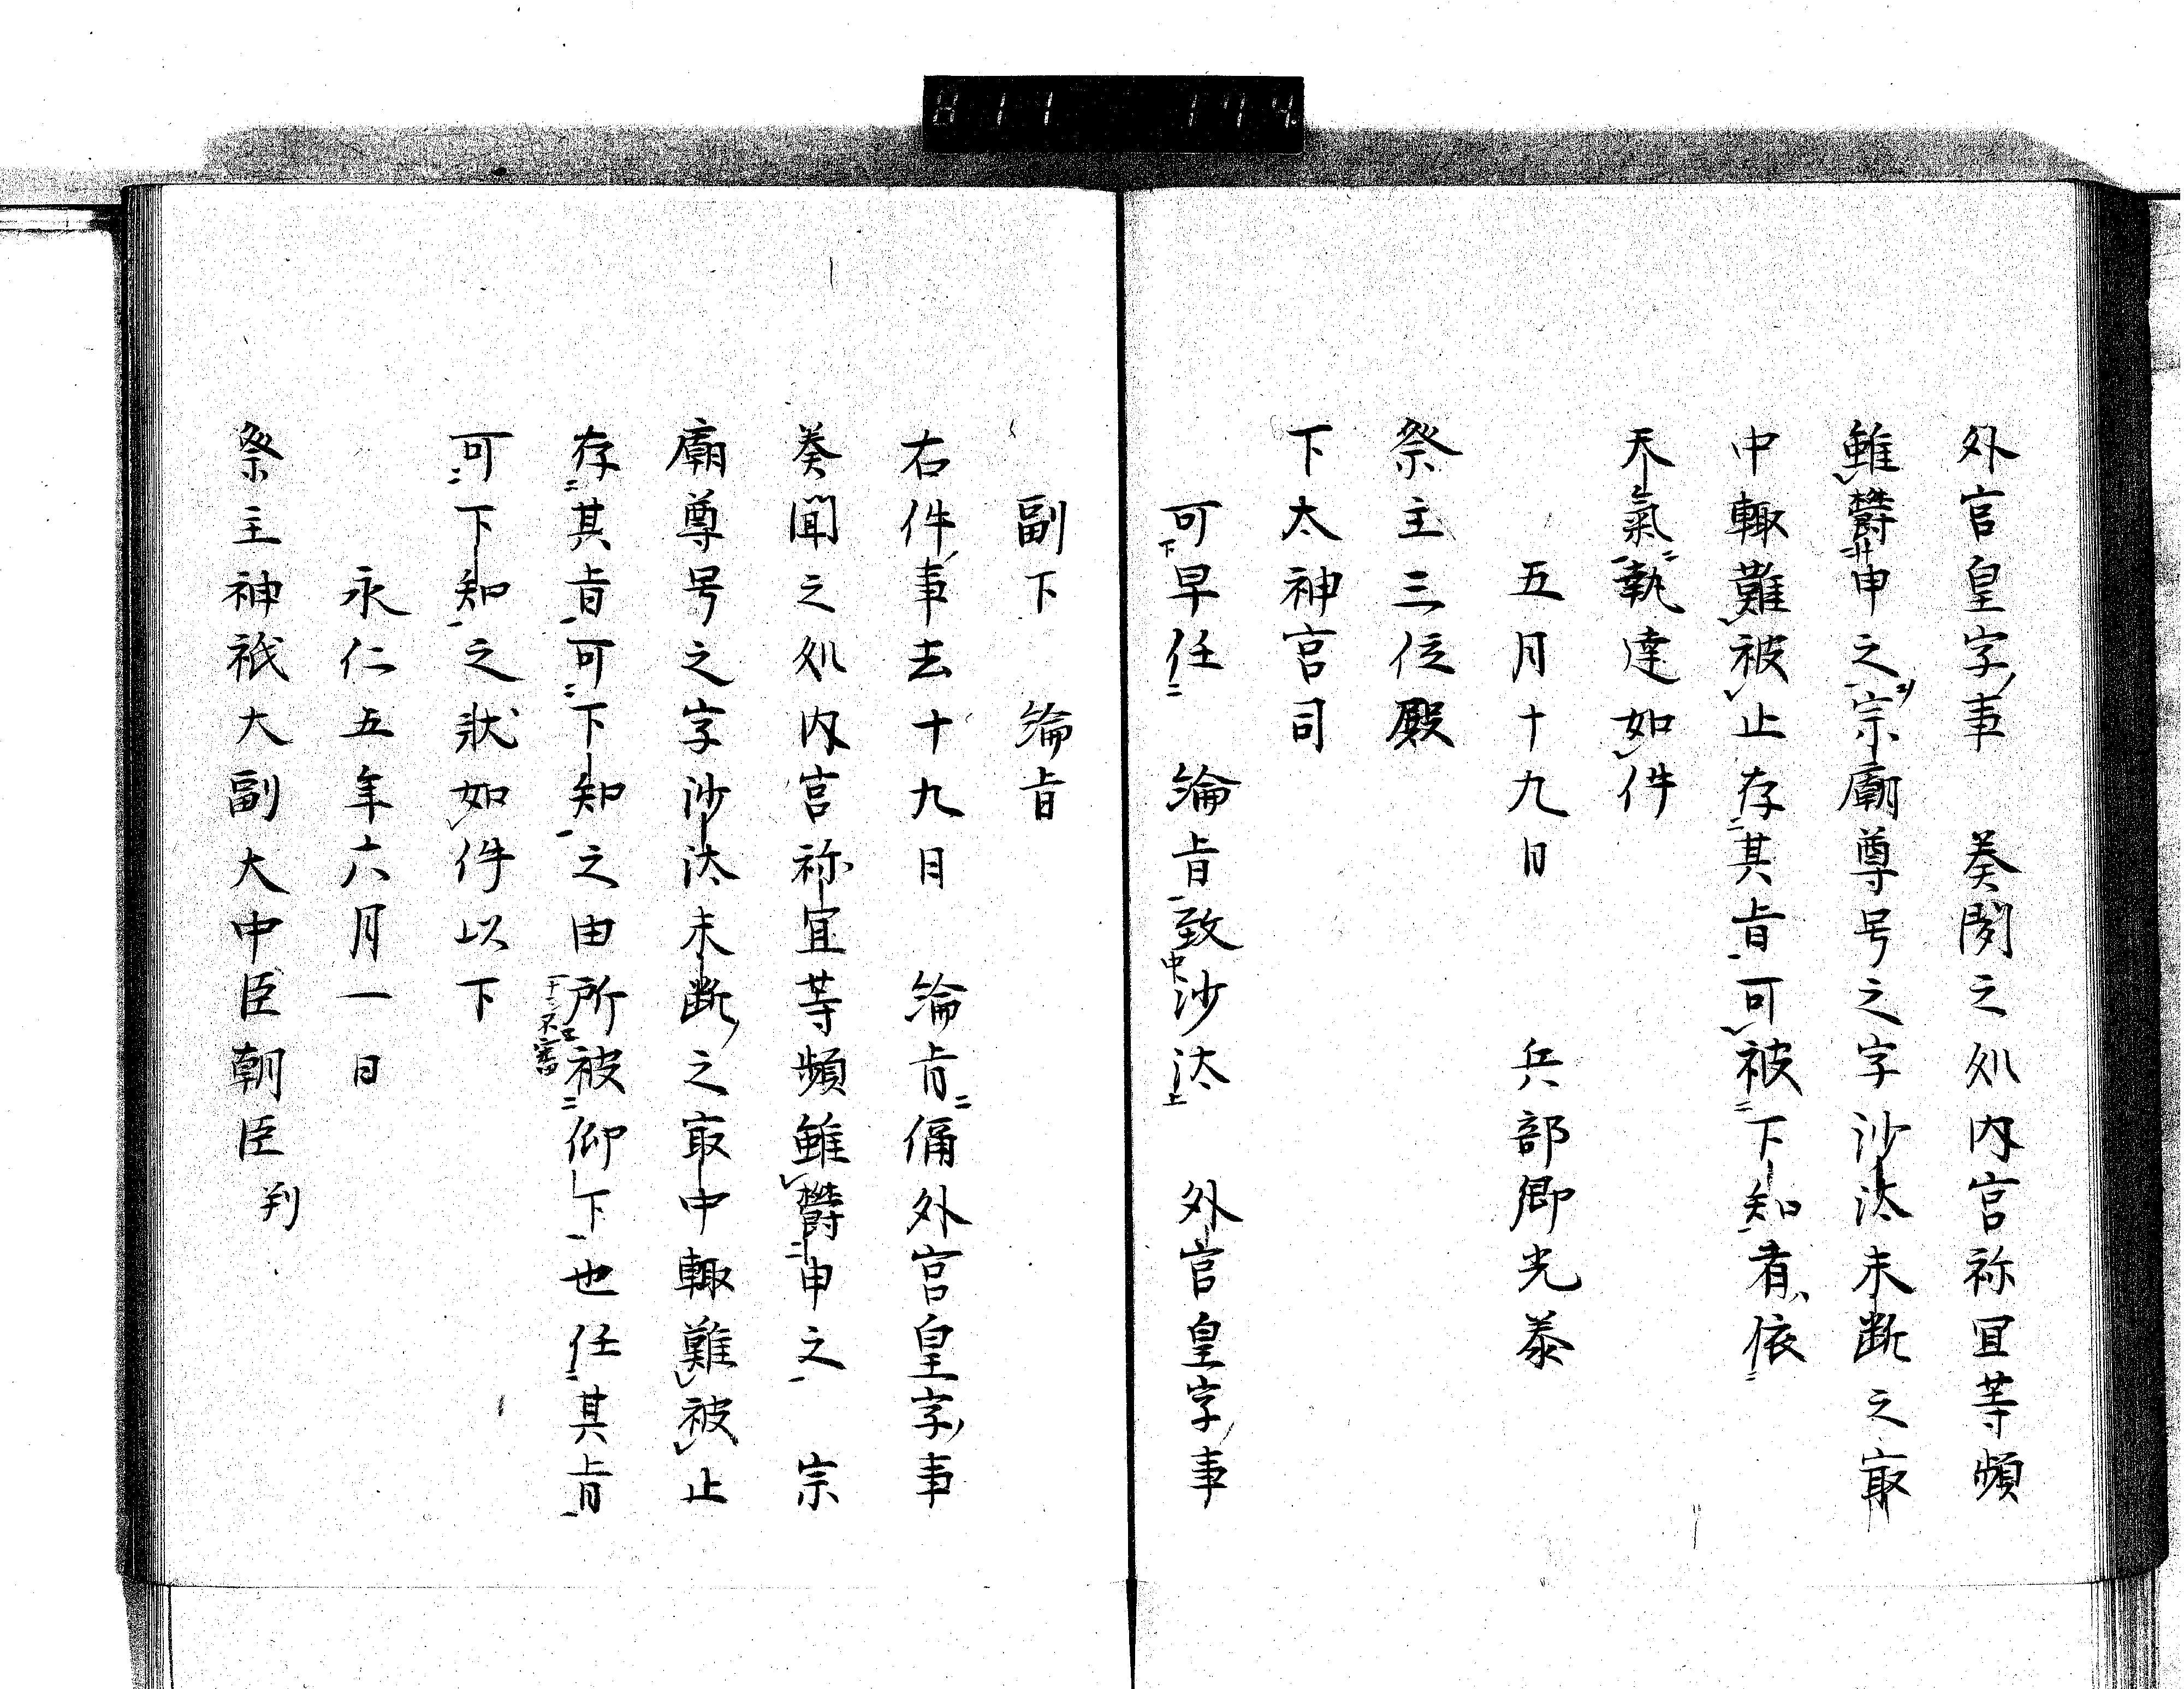 811 174
外宮皇字事 奏聞之処内宮祢冝等頻
雖欝申之宗廟尊号之字沙汰未断之㝡
中輙難被止存其旨可被下知者依
天氣執達如件
五月十九日 兵部卿光泰
祭主三位殿
下太神宮司
可早任 綸旨致沙汰 外宮皇字事
副下 綸旨
右件事去十九日 綸旨偁外宮皇字事
奏聞之処内宮祢宜等頻雖欝申之 宗
廟尊号之字沙汰未断之㝡中輙難被止
存其旨可下知之由所被仰下也任其旨
可下知之状如件以下
永仁五年六月一日
祭主神祇大副大中臣朝臣 判